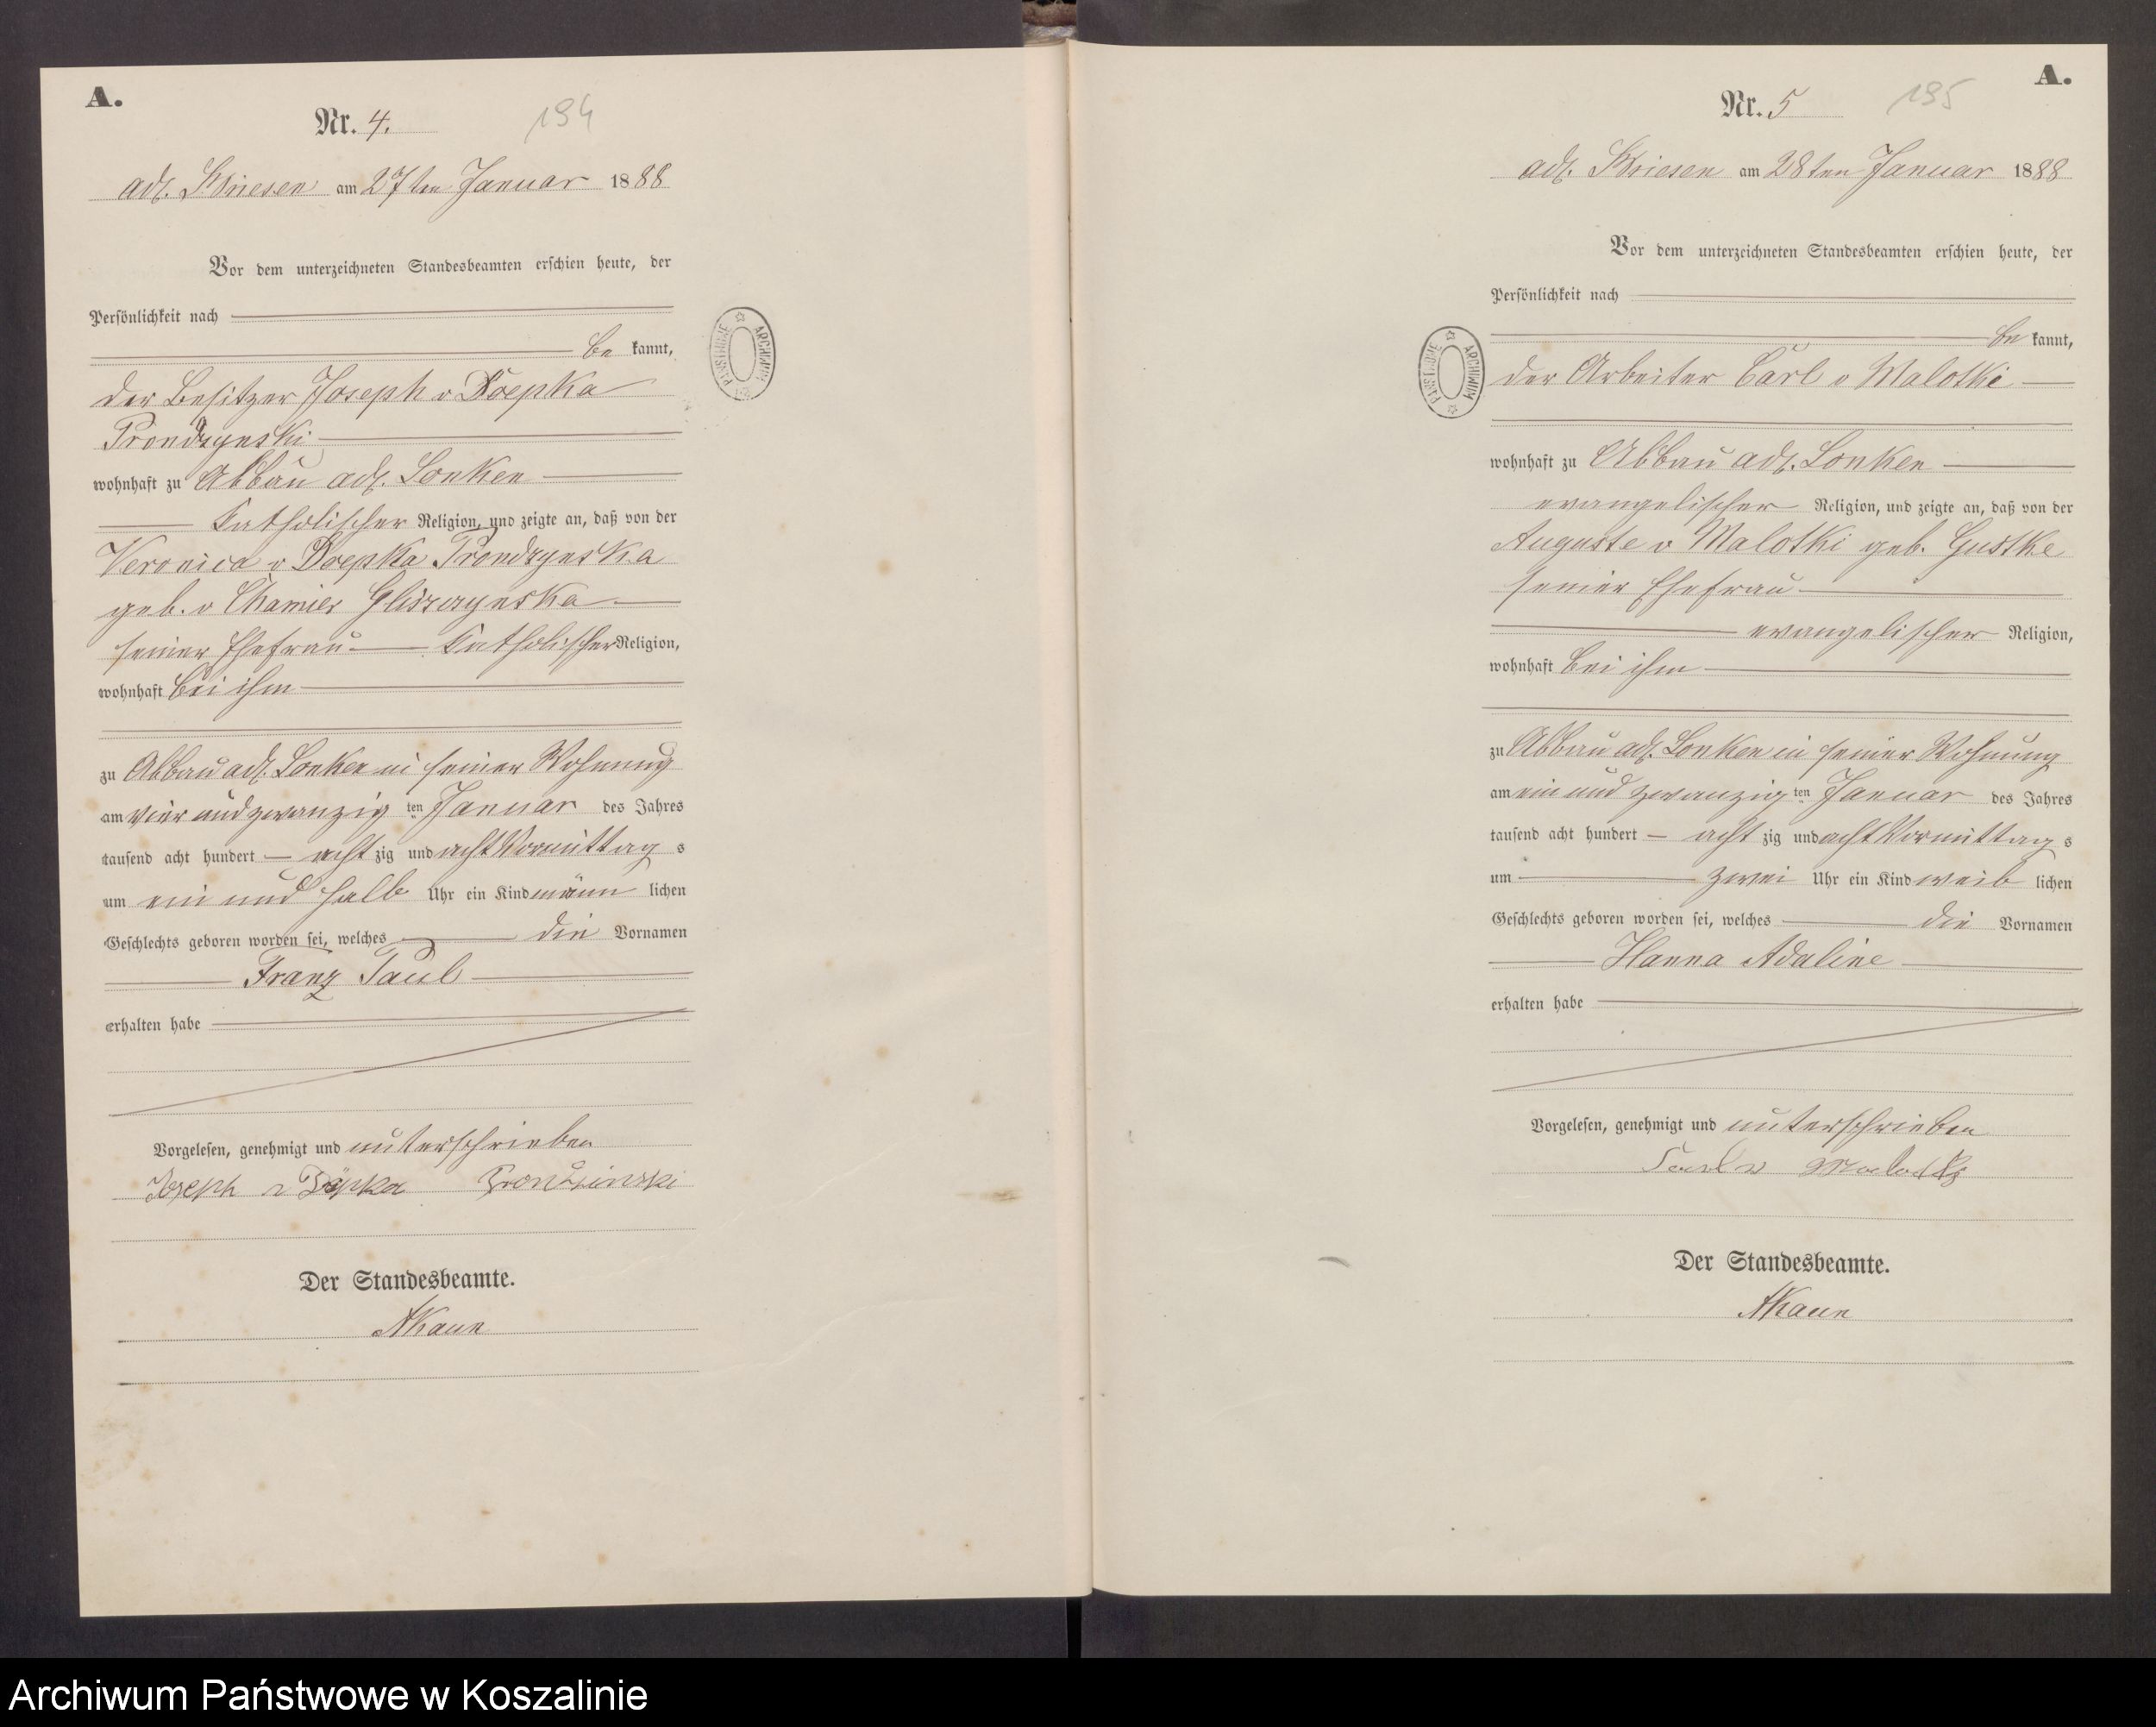 A.
Nr. 4.
194
adl. Briesen am 27ten Januar 1888
Vor dem unterzeichneten Standesbeamten erschien heute, der
Persönlichkeit nach
be kannt,
der Besitzer Joseph v Doepka
Prondzynski
wohnhaft zu Abbau adl. Lonken
katholischer Religion, und zeigte an, daß von der
Veronica v Doepka Prondzynska
geb. v Chamier Gliszczynska
seiner Ehefrau katholischer Religion,
wohnhaft bei ihm
zu Abbau adl. Lonken in seiner Wohnung
am vier und zwanzig ten Januar des Jahres
tausend acht hundert acht zig und acht Vormittag s
um ein und halb Uhr ein Kind männ lichen
Geschlechts geboren worden sei, welches die Vornamen
Franz Paul
erhalten habe
Vorgelesen, genehmigt und unterschrieben
Joseph v Döpka Prondzinski
Der Standesbeamte.
AKaun
A.
Nr. 5
195
adl. Briesen am 28ten Januar 1888
Vor dem unterzeichneten Standesbeamten erschien heute, der
Persönlichkeit nach
be kannt,
der Arbeiter Carl v Malotki
wohnhaft zu Abbau adl. Lonken
evangelischer Religion, und zeigte an, daß von der
Auguste v Malotki geb. Gustke
seiner Ehefrau
evangelischer Religion,
wohnhaft bei ihm
zu Abbau adl. Lonken in seiner Wohnung
am ein und zwanzig ten Januar des Jahres
tausend acht hundert acht zig und acht Vormittag s
um zwei Uhr ein Kind weib lichen
Geschlechts geboren worden sei, welches die Vornamen
Hanna Adaline
erhalten habe
Vorgelesen, genehmigt und unterschrieben
Carl v Malotki
Der Standesbeamte.
AKaun
ARCHIWUM PAŃSTWOWE
ARCHIWUM PAŃSTWOWE
Archiwum Państwowe w Koszalinie